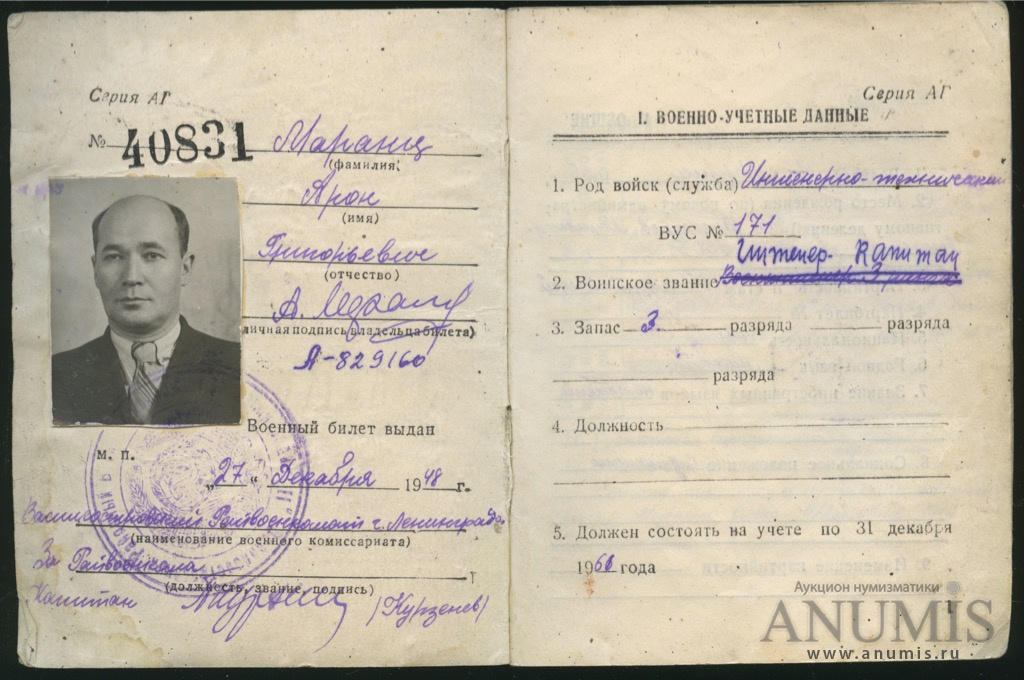 Серия АГ
№ 40831 Маранц
(фамилия)
Арон
(имя)
Григорьевич
(отчество)
А.
(личная подпись владельца билета)
А-829160
Военный билет выдан
м. п.
„27“ Декабря 1948 г.
Василеостровский Райвоенкомат г. Ленинграда
(наименование военного комиссариата)
За Райвоенкома
(должность, звание, подпись)
Капитан (Курзенев)
Серия АГ
I. ВОЕННО-УЧЕТНЫЕ ДАННЫЕ
1. Род войск (служба) Инженерно-технический
ВУС № 171
Инженер-Капитан
2. Воинское звание
3. Запас 3. разряда разряда
разряда
4. Должность
5. Должен состоять на учёте по 31 декабря
196 года
1
Аукцион нумизматики
ANUMIS
www.anumis.ru